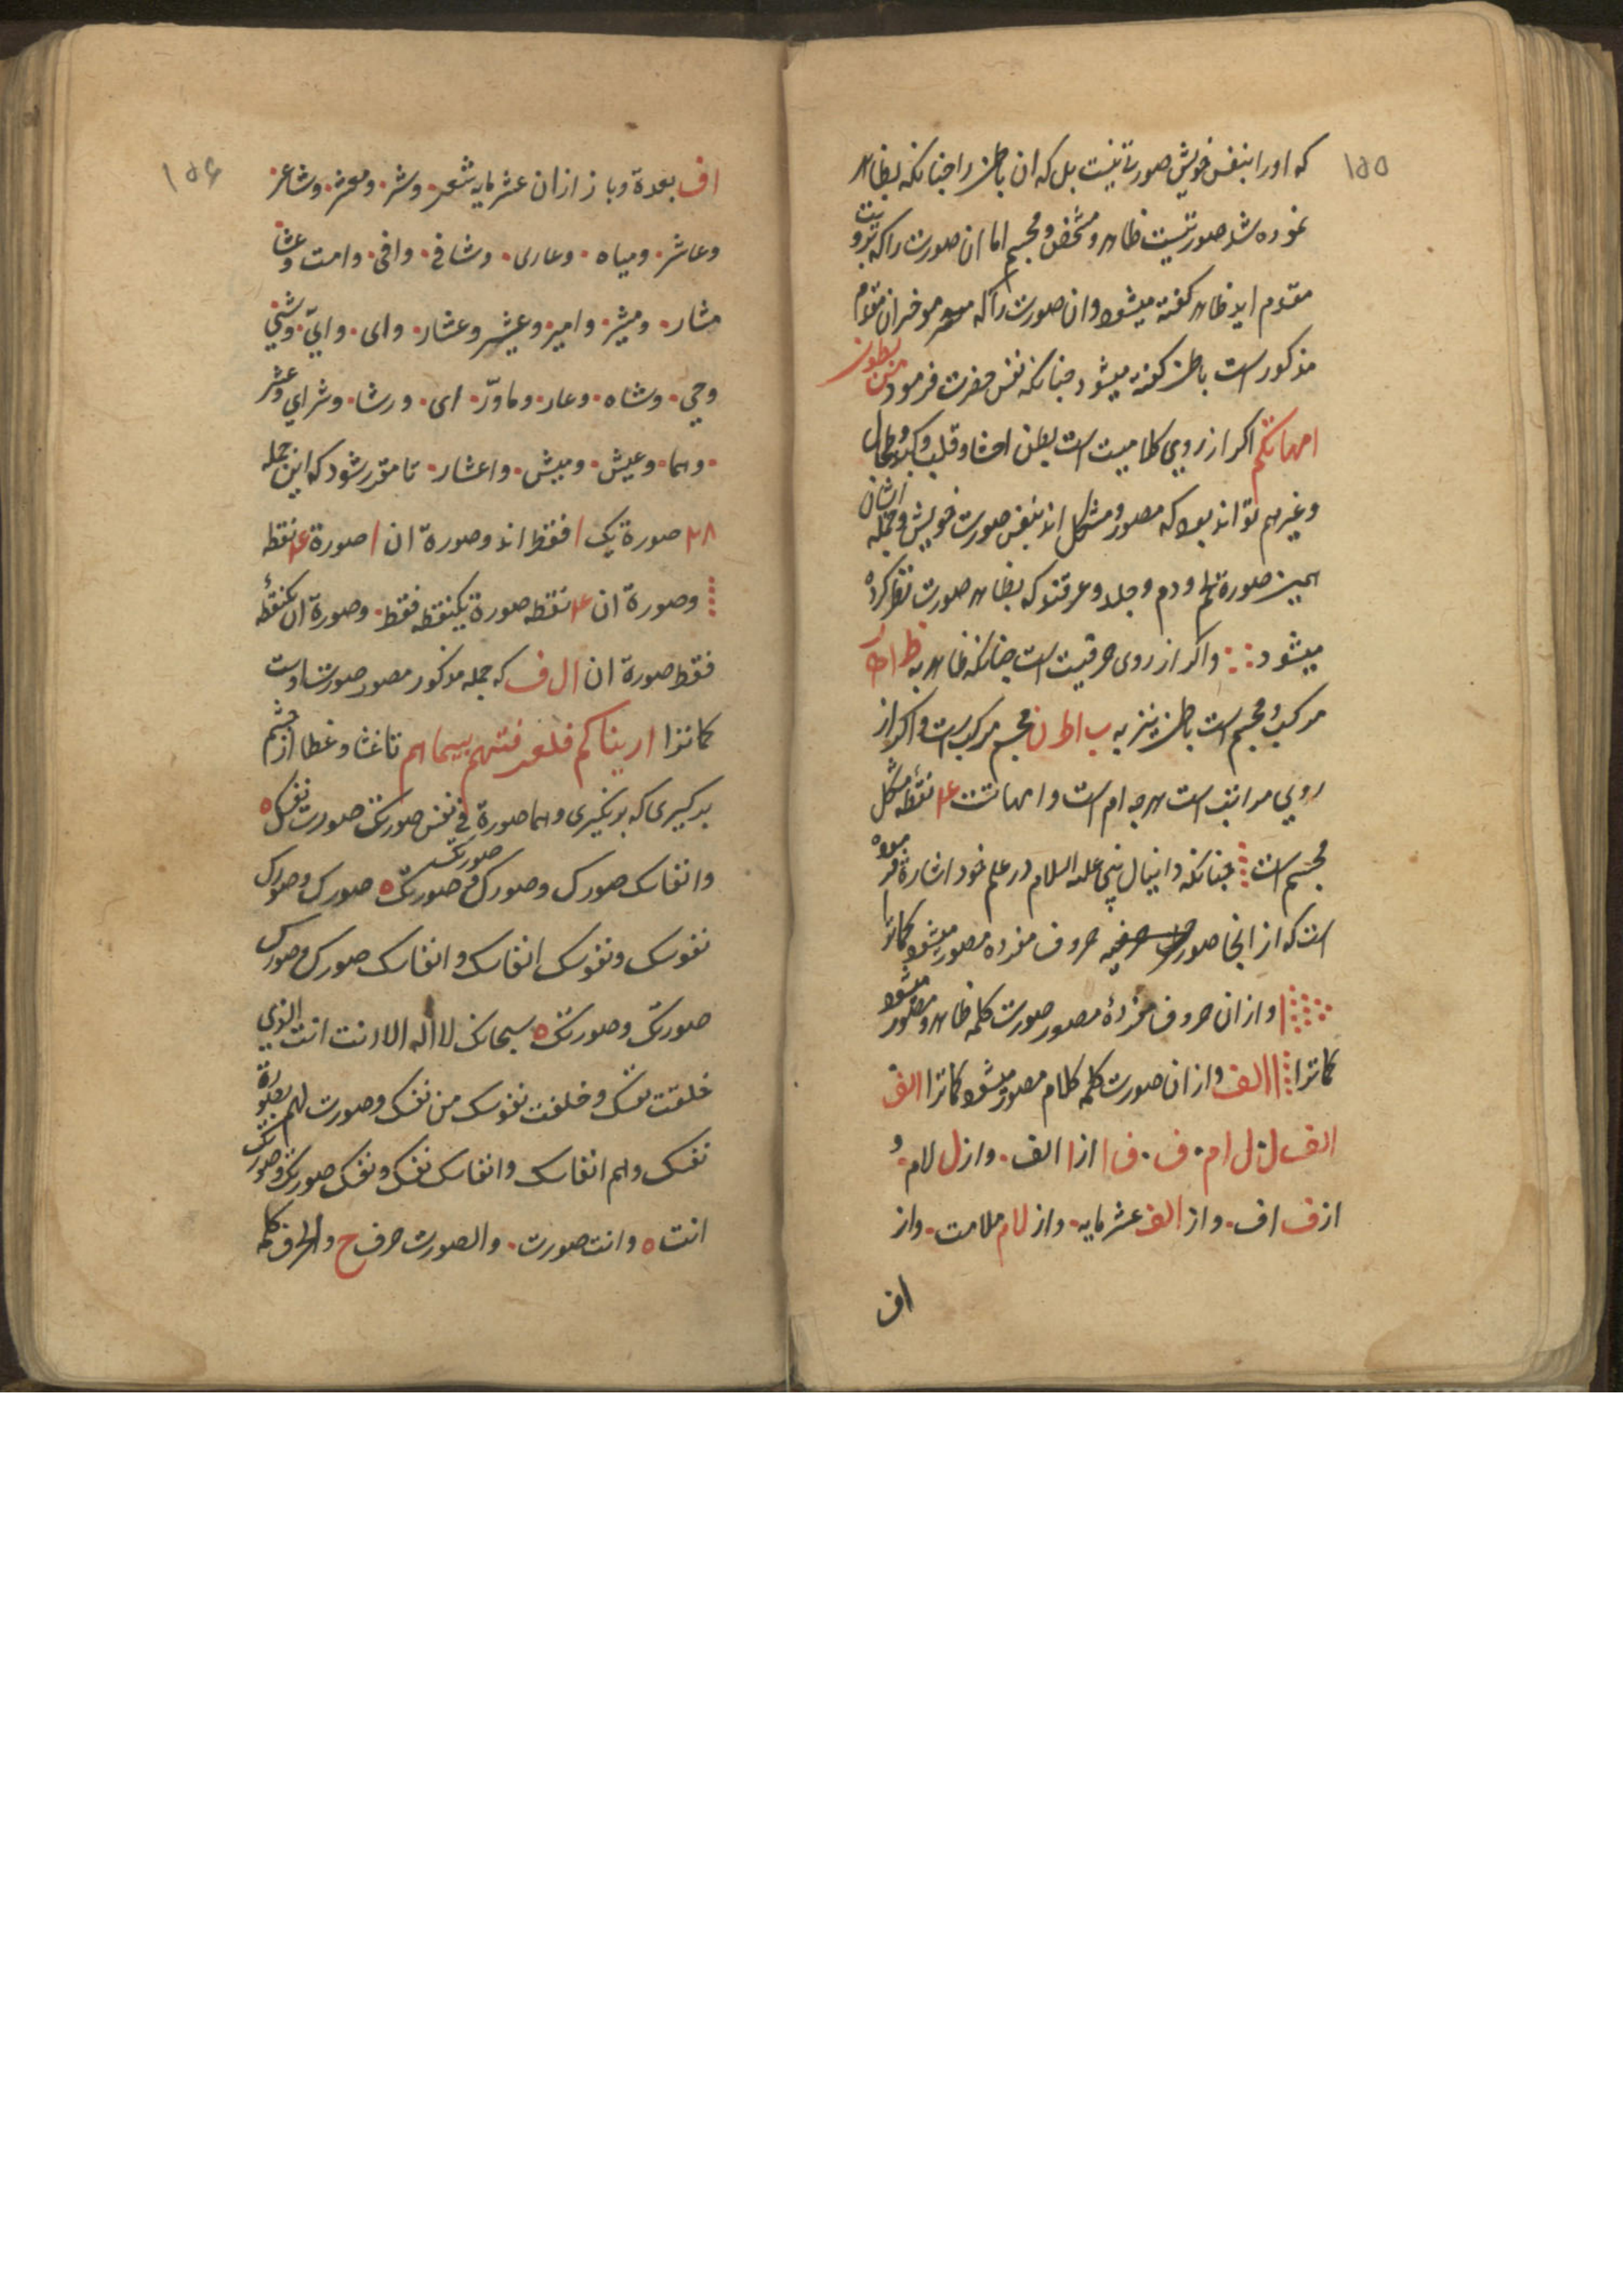 ۱۵۵
که اورا بنفس خویش صورتی نیست بل که ان باطن را چنانکه بظاهر
نموده شد صورتیست ظاهر و مشخص و مجسم اما ان صورت را که برویت
مقدم اید ظاهر کفته میشود وان صورت را که موخر ان مقدم
مذکور است باطن کفته میشود چنانکه نفس حضرت فرمود من بطون
امهاتکم اکر از روی کلامیت است بطن احشا و قلب و کبد و طحال
وغیرهم تواند بود که مصور و مشکل اند بنفس صورت خویش و جمله اشان
همین صورة لحم و دم و جلد و عرقند که بظاهر صورت نظر کرده
میشود واکر از روی حرقیت است چنانکه ظاهر به ظ ا ه ر
مرکب و مجسم است باطن نیز به ب ا ط ن مجسم مرکب است واکر از
روی مراتب است هرچه ام است و امهاتست ۴ نقطه مشکل
مجسم است چنانکه دانیال نبی علیه السلام در علم خود اشارة فرموده
است که از انجا صور حروف مفرده مصور میشود کماترا
وازان حروف مفردهٔ مصور صورت کلمه ظاهر و مصور میشود
کماترا ا الف وازان صورت کلمه کلام مصور میشود کماترا الف
الف ل ل ام ف ف ا از ا الف واز ل لام و
از ف اف واز الف عشر مایه واز لام ملامت واز
اف
۱۵۶
اف بعدة وباز ازان عشر مایه شعر وشر ومعشر وشاعر
وعاشر ومیاه وعاری وشافی وافی وامت وعشا
مشار ومیشر وامیر وعیشر وعشار وای وایّ وشی
وحی وشاه وعار وماورّ ای ورشا وشرای وعشر
وهما وعیش ومیش واعشار تا مقرر شود که این جمله
۲۸ صورة یک ا فقط اند وصورة ان ا صورة ۴ نقطه
وصورة ان ۴ نقطه صورة یکنقطه فقط وصورة ان یکنقطه
فقط صورة ان ال ف که جمله مذکور مصور صورت اوست
کماترا اریناکم فلعرفتهم بسیماهم تا غشا و غطا از چشم
برکیری که برنکیری وهما صورة فی نفس صورتک صورت نفسک
وانفاسک صورک وصورک فی صورتک صورتک صورک وصورک
نفوسک ونفوسک انفاسک وانفاسک صورک وصورک
صورتک وصورتک سبحانک لا اله الا انت انت الذی
خلقت نفسک وخلقت نفوسک من نفسک وصورت لهم بصورة
نفسک وهم انفاسک وانفاسک نفسک ونفسک صورتک وصورتک
انت وانت صورت والصورت حرف ح والحرف کلمه